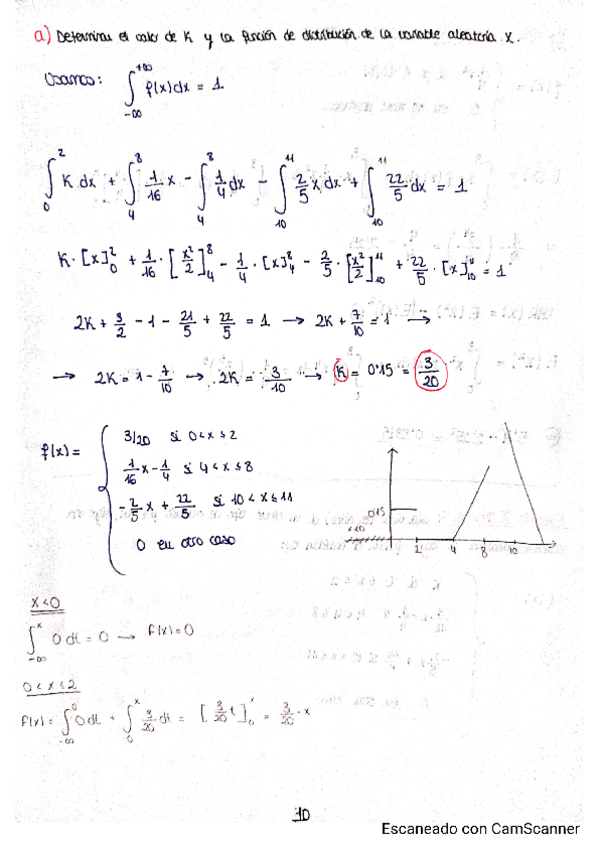 a) Determinar el valor de K y la función de distribución de la variable aleatoria X.
Usamos: ∫_{-∞}^{+∞} f(x)dx = 1
∫_0^2 K dx + ∫_4^8 1/16 x - ∫_4^8 1/4 dx - ∫_10^11 2/5 x dx + ∫_10^11 22/5 dx = 1
K · [x]_0^2 + 1/16 · [x²/2]_4^8 - 1/4 · [x]_4^8 - 2/5 · [x²/2]_10^11 + 22/5 · [x]_10^11 = 1
2K + 3/2 - 1 - 21/5 + 22/5 = 1 → 2K + 7/10 = 1 →
→ 2K = 1 - 7/10 → 2K = 3/10 → K = 0'15 = 3/20
f(x) =
3/20 si 0 < x ≤ 2
1/16 x - 1/4 si 4 < x ≤ 8
-2/5 x + 22/5 si 10 < x ≤ 11
0 en otro caso
0'15
x<0
2 4 8 10
x < 0
∫_{-∞}^x 0 dt = 0 → f(x) = 0
0 < x < 2
f(x) = ∫_{-∞}^0 0 dt + ∫_0^x 3/20 dt = [3/20 t]_0^x = 3/20 · x
10
Escaneado con CamScanner